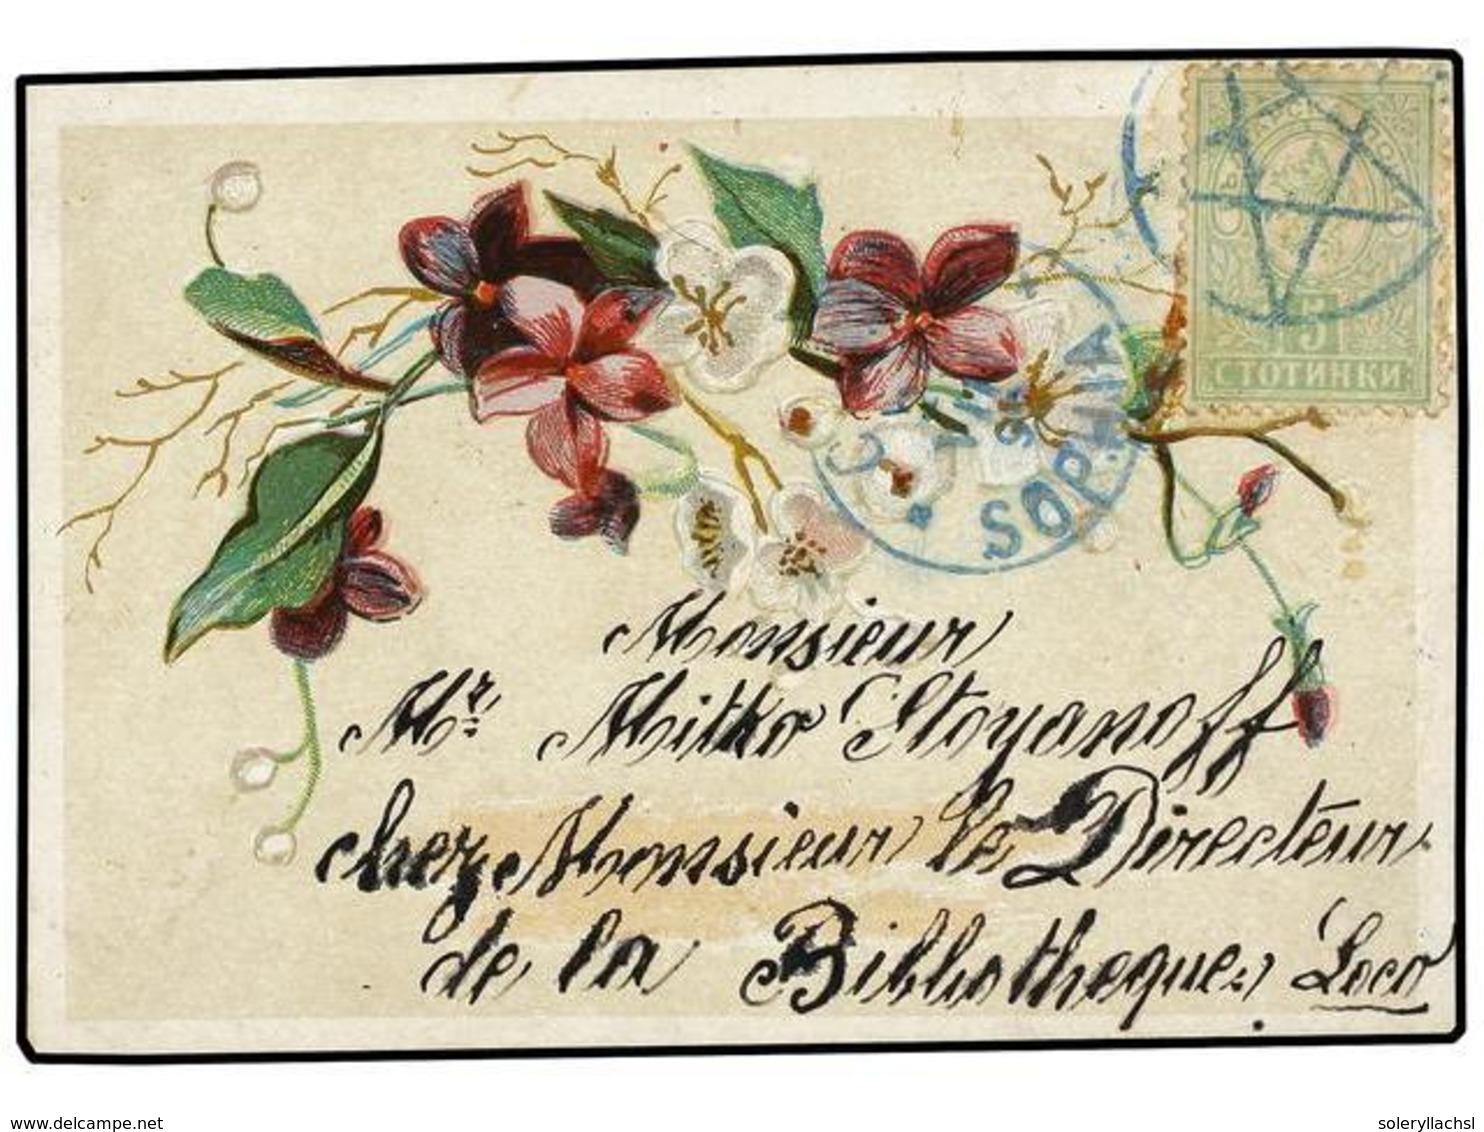 5
СТОТИНКИ
SOPHIA
Monsieur
Mr. Mitko Stoyanoff
chez Monsieur le Directeur
de la Bibliotheque. Loco
delcampe.net
soleryllachsl